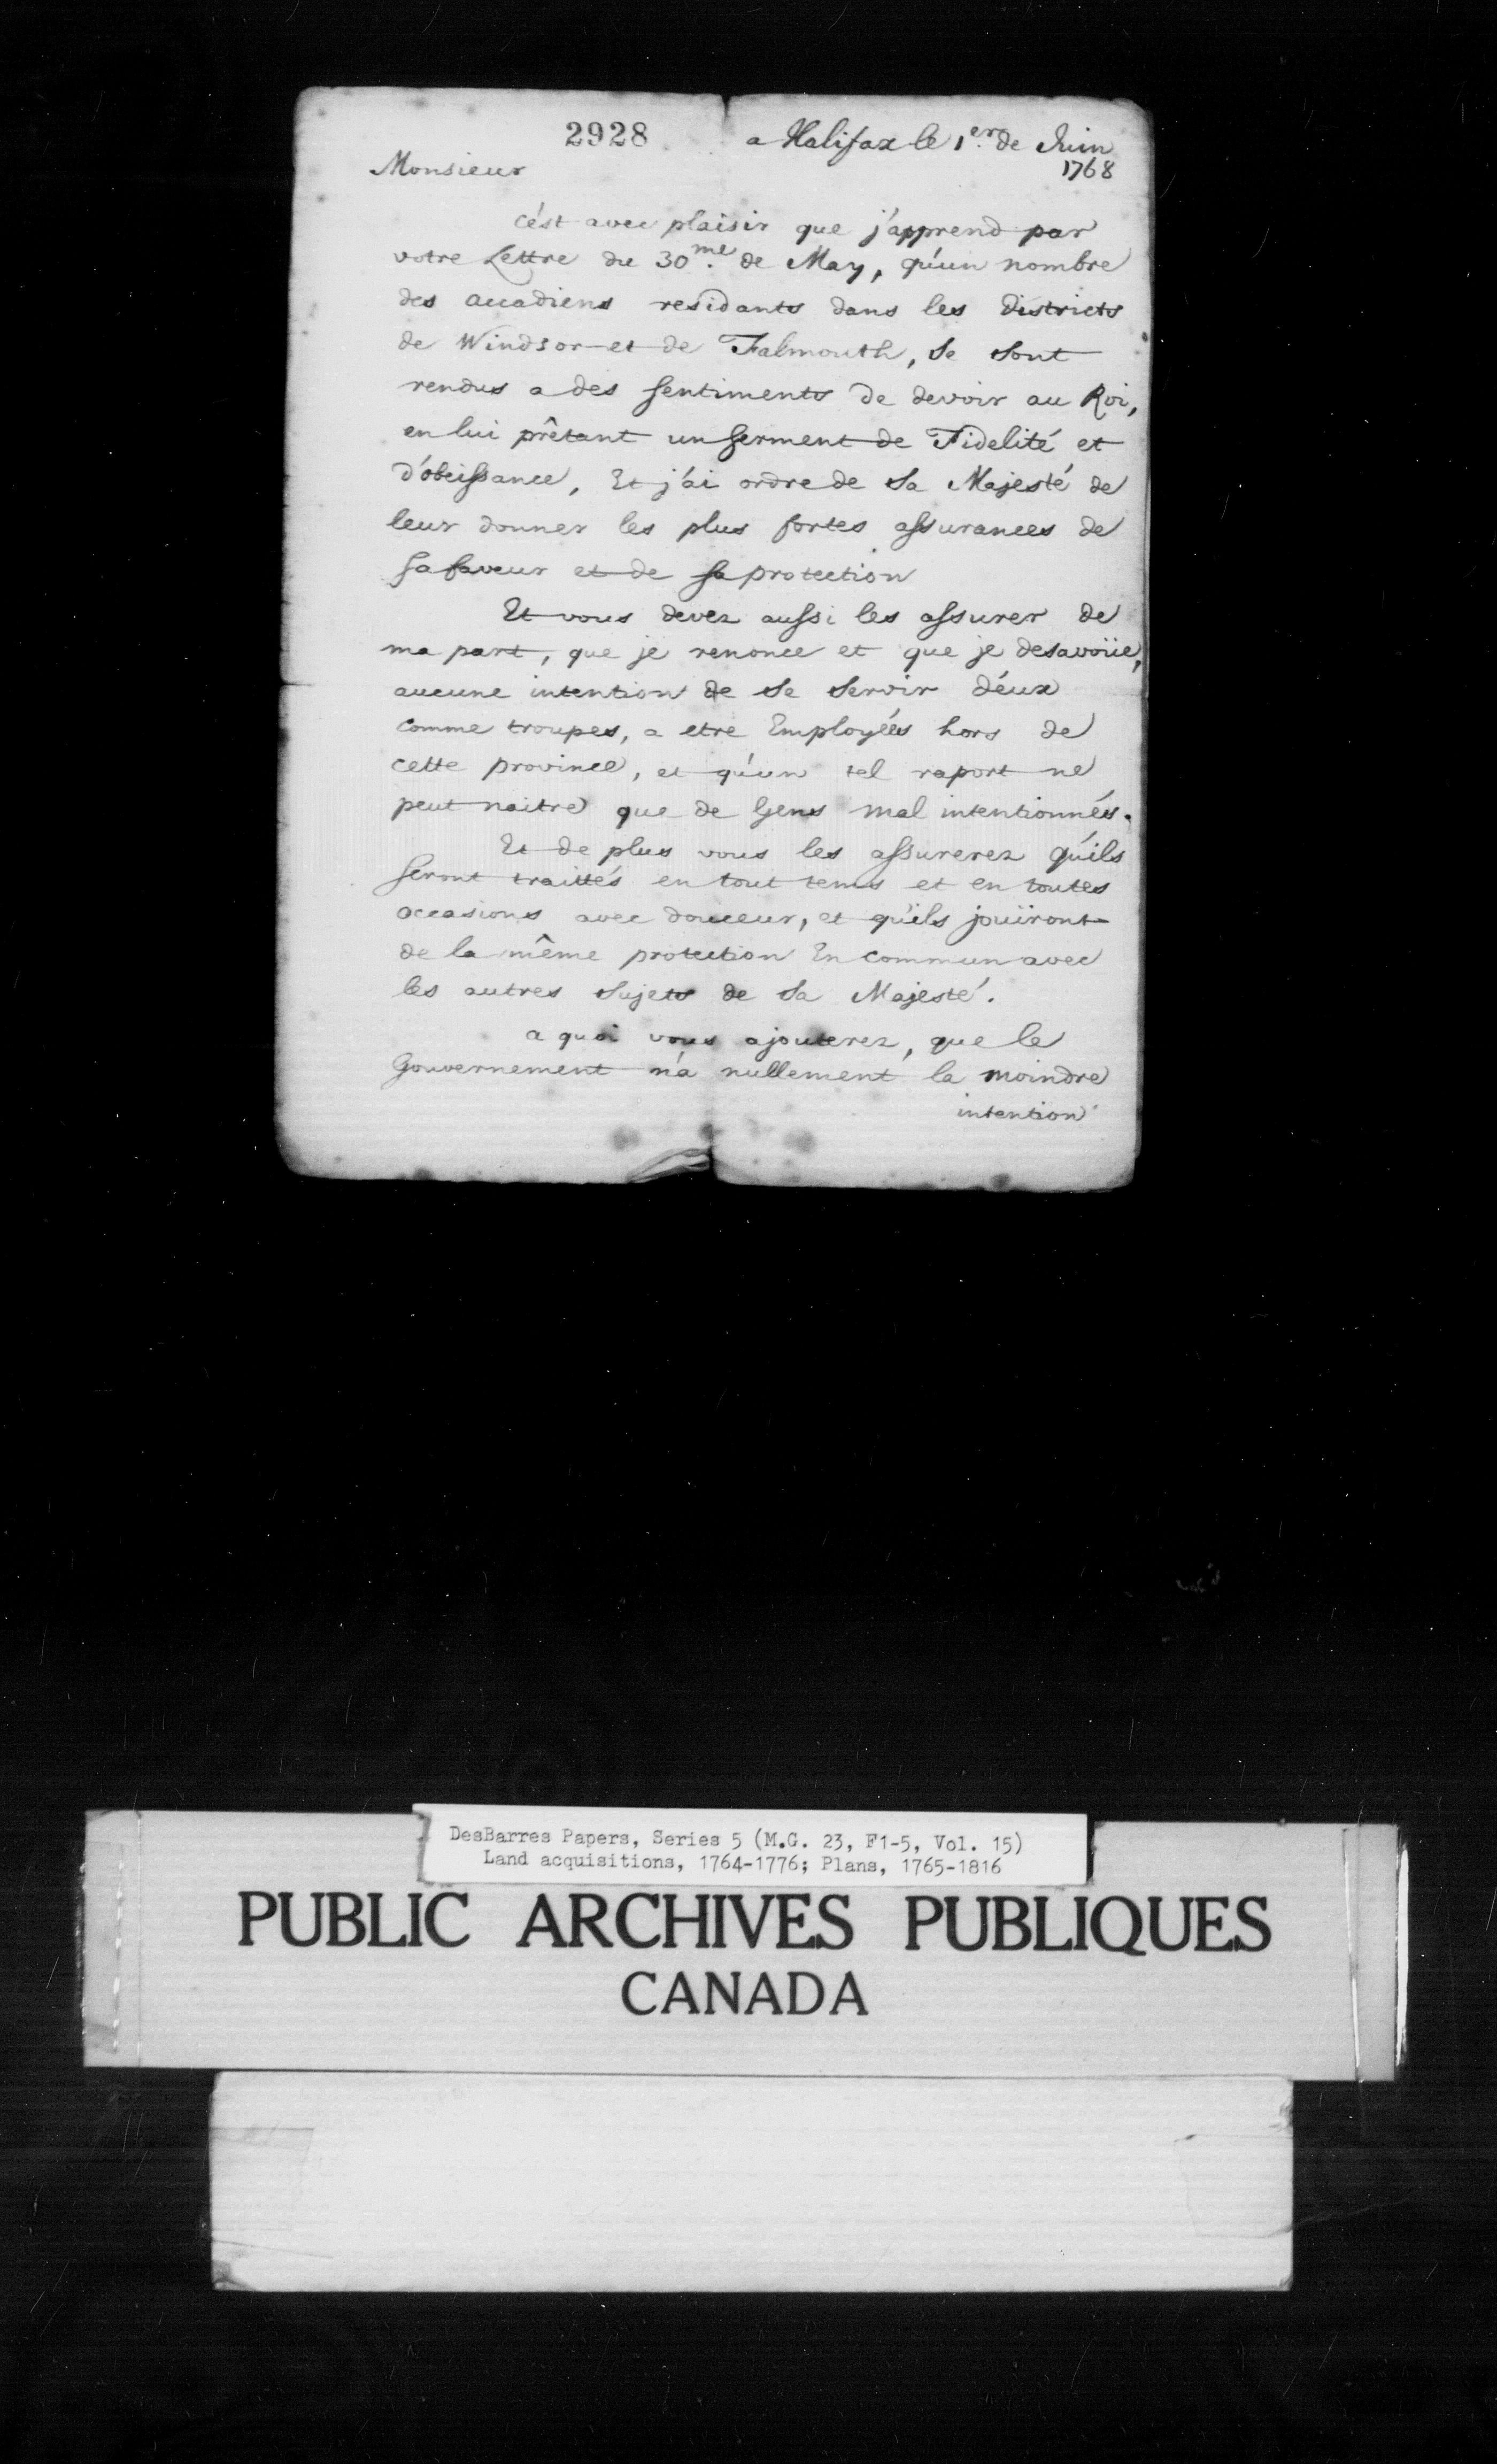 2928
a Halifax le 1er. de Juin
1768
Monsieur
c'ést avec plaisir que j'apprend par
votre Lettre du 30me. de May, qu'un nombre
des accadiens residants dans les districts
de Windsor et de Falmouth, se sont
rendus a des sentiments de devoir au Roi,
en lui prêtant un serment de Fidelité et
d'obeissance, Et j'ai ordre de sa Majesté de
leur donner les plus fortes assurances de
sa faveur et de sa protection
Et vous devez aussi les assurer de
ma part, que je renonce et que je desavoüe,
aucune intention de se servir d'eux
comme troupes, a etre Employées hors de
cette province, et qu'un tel raport ne
peut naitre que de Gens mal intentionnés.
Et de plus vous les assurerez qu'ils
seront traittés en tout tems et en toutes
occasions avec douceur, et qu'ils joüiront
de la même protection En commun avec
les autres sujets de sa Majesté.
a quoi vous ajouterez, que le
Gouvernement n'a nullement la moindre
intention
DesBarres Papers, Series 5 (M.G. 23, F1-5, Vol. 15)
Land acquisitions, 1764-1776; Plans, 1765-1816
PUBLIC ARCHIVES PUBLIQUES
CANADA